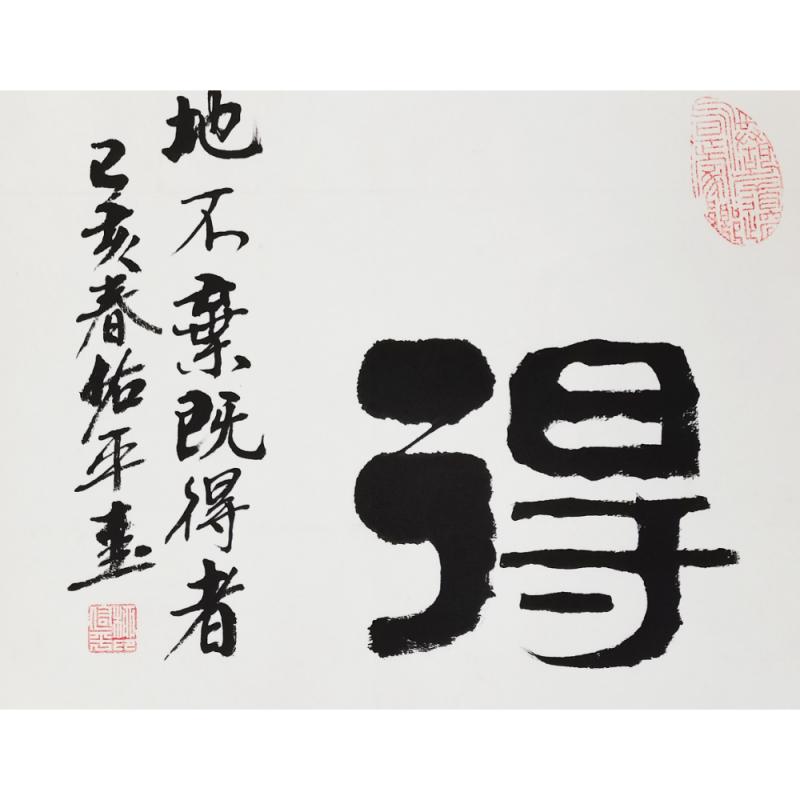 得
地不棄既得者
己亥春佑平